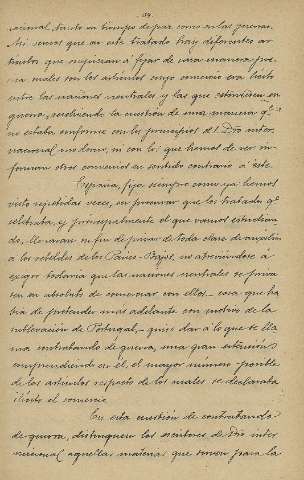 39.
cional, tanto en tiempo de paz como en las guerras.
Asi vemos que en este tratado hay diferentes ar-
ticulos que empiezan a fijar de una manera pre-
cisa cuales son los articulos cuyo comercio era licito
entre las naciones neutrales y las que estuviesen en
guerra, resolviendo la cuestion de una manera qe.
no estaba conforme con los principios del Dro inter-
nacional moderno, ni con lo que hemos de ver in-
forman otros convenios en sentido contrario á este.
España, fija siempre como ya hemos
visto repetidas veces, en procurar que los tratados qe.
celebraba, y principalmente el que vamos estudian-
do, llevaran su fin de privar de toda clase de auxilios
á los rebeldes de los Paises-Bajos, no atreviendose á
exigir todavia que las naciones neutrales se priva-
sen en absoluto de comerciar con ellos — cosa que ha-
bia de pretender mas adelante con motivo de la
sublevacion de Portugal, — quiso dar á lo que se lla-
ma contrabando de guerra, una gran extension,
comprendiendo en él, el mayor número posible
de los articulos respecto de los cuales se declaraba
ilícito el comercio.
En esta cuestion de contrabando
de guerra, distinguen los escritores de Dro inter-
nacional aquellas materias que sirven para la